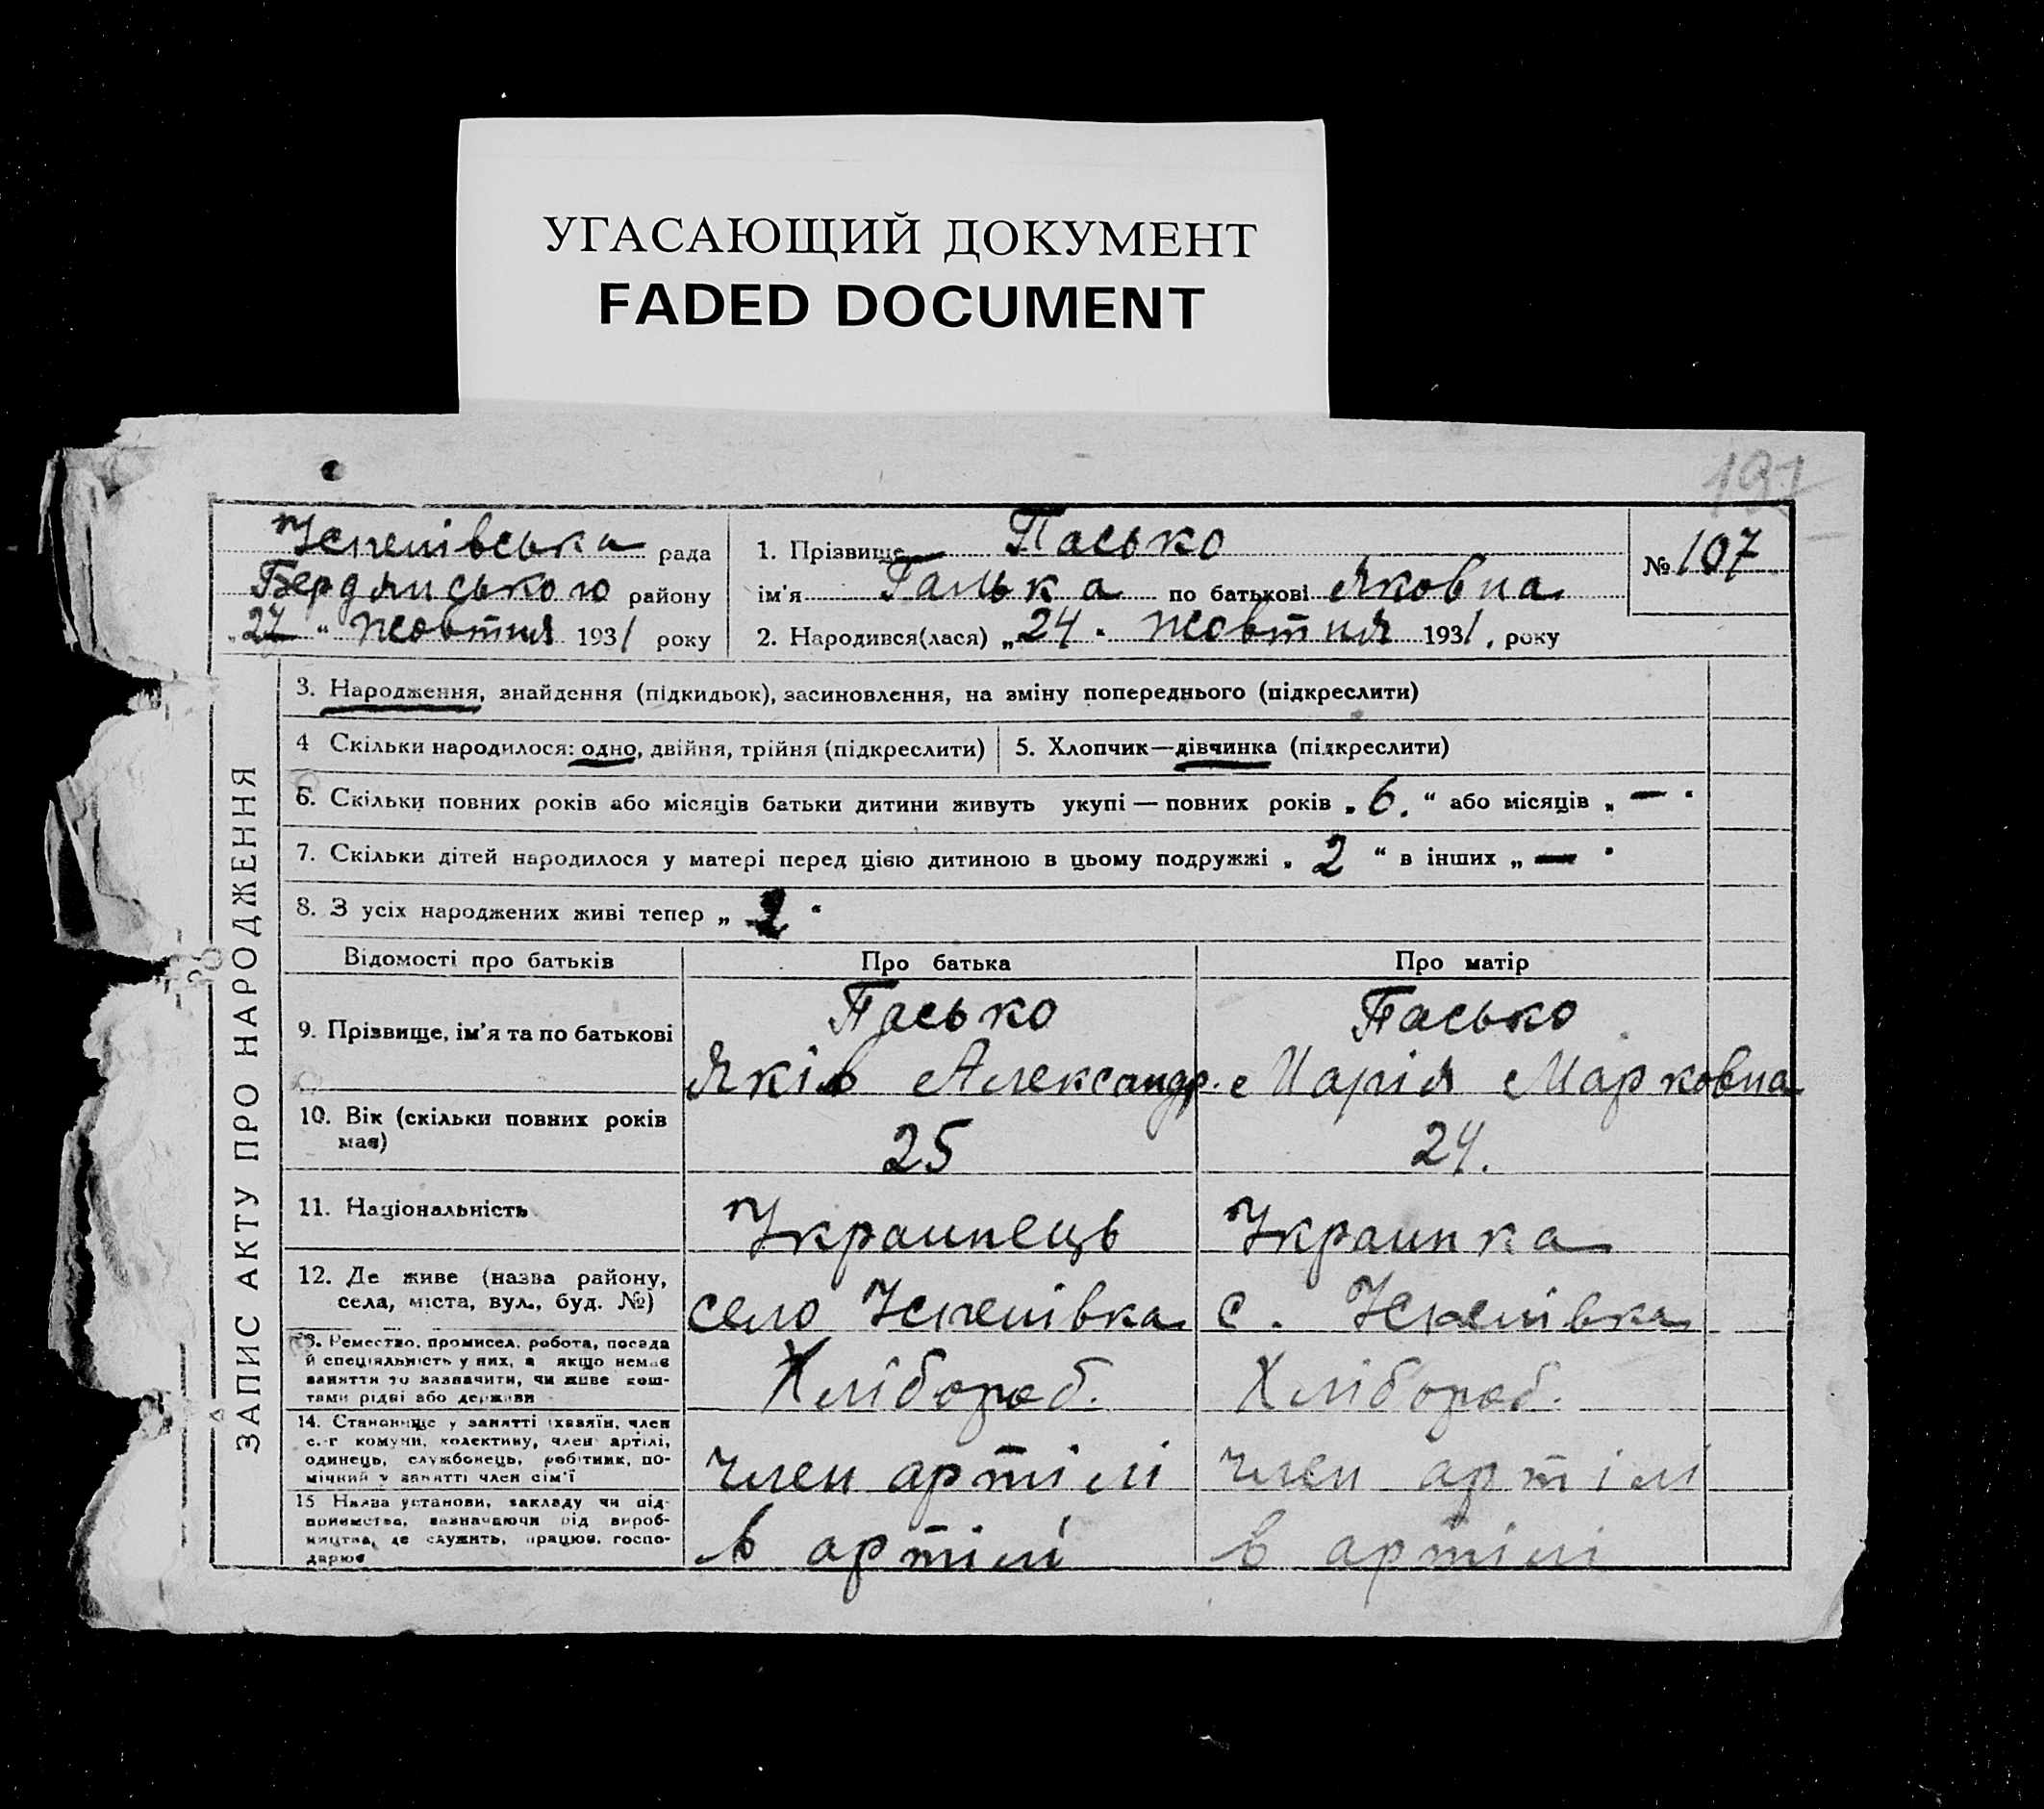 УГАСАЮЩИЙ ДОКУМЕНТ
FADED DOCUMENT
Успенівська рада
Бердянського району
"27" жовтня 1931 року
1. Прізвище Пасько
ім'я Галька по батькові Яковна
2. Народився(лася) „24" жовтня 1931, року
№ 107
ЗАПИС АКТУ ПРО НАРОДЖЕННЯ
3. Народження, знайдення (підкидьок), засиновлення, на зміну попереднього (підкреслити)
4 Скільки народилося: одно, двійня, трійня (підкреслити)
5. Хлопчик—дівчинка (підкреслити)
6. Скільки повних років або місяців батьки дитини живуть укупі — повних років „6." або місяців „—"
7. Скільки дітей народилося у матері перед цією дитиною в цьому подружжі „2" в інших „—"
8. З усіх народжених живі тепер „2"
Відомості про батьків
Про батька
Про матір
9. Прізвище, ім'я та по батькові
Пасько
Яків Александр.
Пасько
Марія Марковна
10. Вік (скільки повних років
має)
25
24.
11. Національність
Украинець
Украинка
12. Де живе (назва району,
села, міста, вул., буд. №)
село Успенівка
с. Успенівка
13. Ремество, промисел, робота, посада
й спеціяльність у них, а якщо немає
заняття то зазначити, чи живе кош-
тами рідні або держави
Хлібороб.
Хлібороб.
14. Становище у занятті (хазяїн, член
с.-г комуни, колективу, член артілі,
одинець, службовець, робітник, по-
мічний у занятті член сім'ї
член артілі
член артілі
15 Назва установи, закладу чи під-
приємства, зазначаючи від вироб-
ництва, де служить, працює, госпо-
дарює
в артілі
в артілі